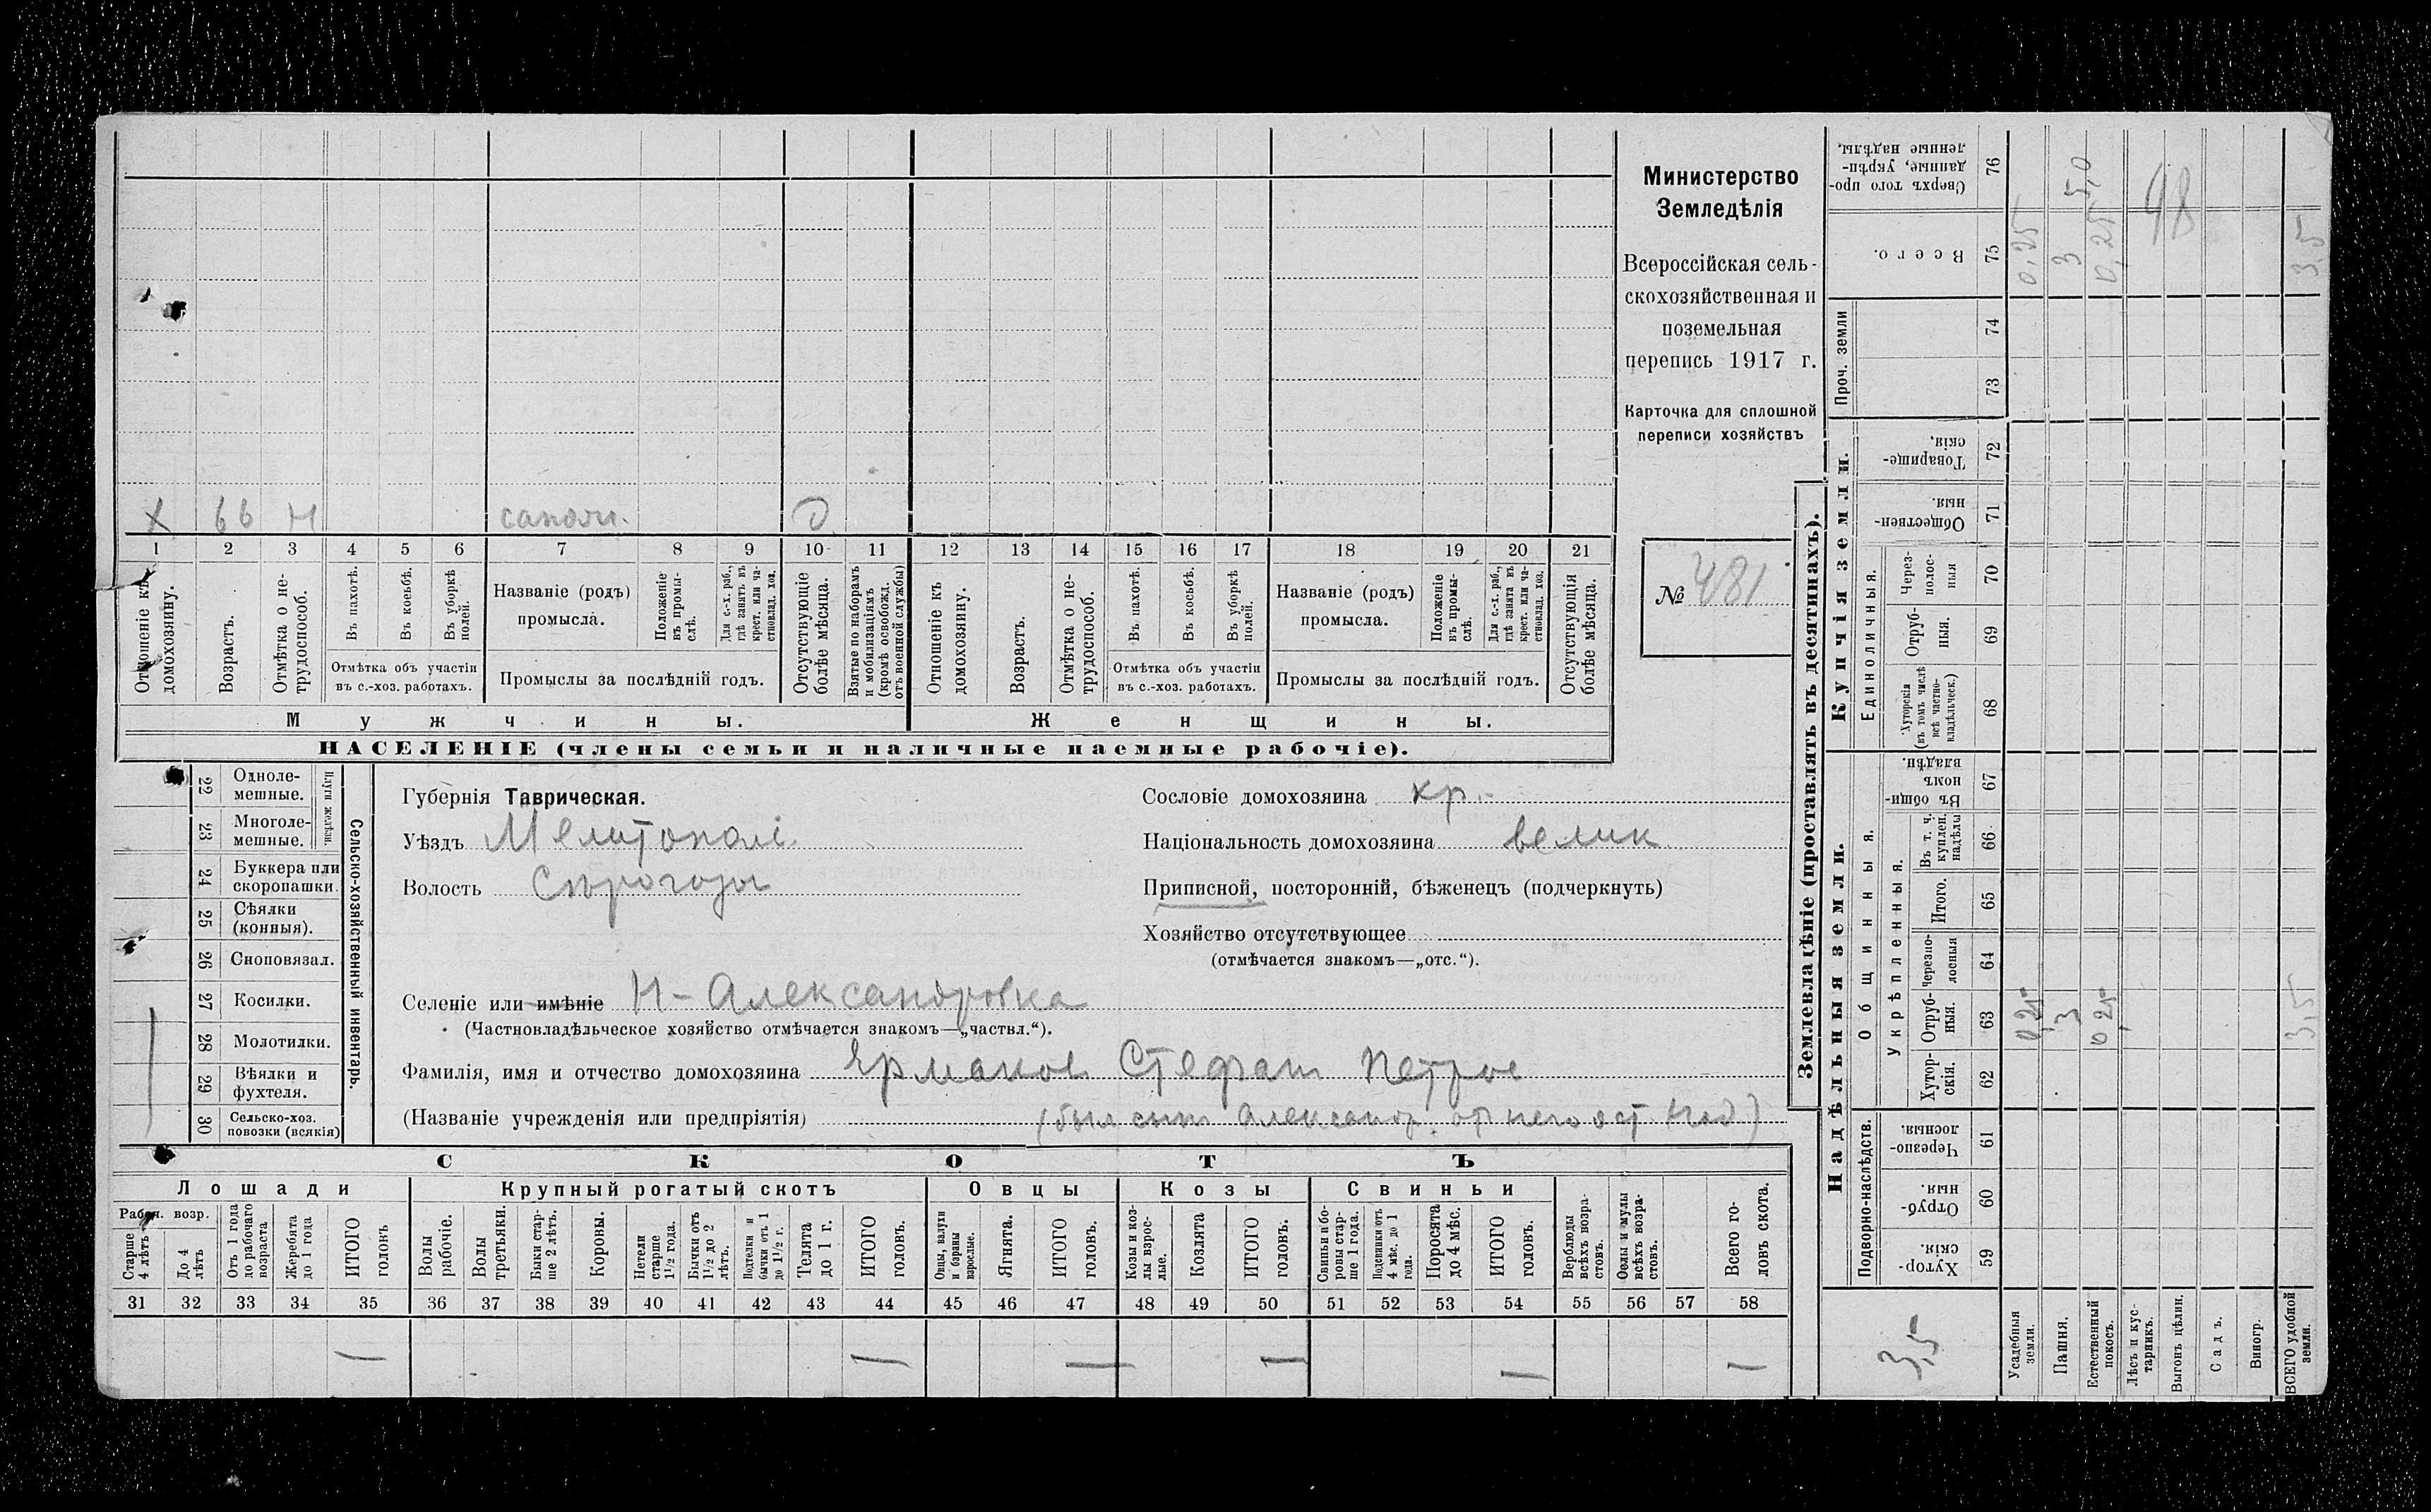 Министерство
Земледѣлія
Всероссійская сель-
скохозяйственная и
поземельная
перепись 1917 г.
Карточка для сплошной
переписи хозяйствъ
№ 481
Х 66 Н сапожн. О
1 2 3 4 5 6 7 8 9 10 11 12 13 14 15 16 17 18 19 20 21
Отношеніе къ домохозяину.
Возрастъ.
Отмѣтка о не-трудоспособ.
Въ пахотѣ.
Въ косьбѣ.
Въ уборкѣ полей.
Отмѣтка объ участіи
въ с.-хоз. работахъ.
Названіе (родъ)
промысла.
Положеніе въ промы-слѣ.
Для с.-х. раб., гдѣ занятъ въ крест. или ча-стновлад. хоз.
Промыслы за послѣдній годъ.
Отсутствующіе болѣе мѣсяца.
Взятые по наборамъ и мобилизаціямъ (кромѣ освобожд. отъ военной службы)
Отношеніе къ домохозяину.
Возрастъ.
Отмѣтка о не-трудоспособ.
Въ пахотѣ.
Въ косьбѣ.
Въ уборкѣ полей.
Отмѣтка объ участіи
въ с.-хоз. работахъ.
Названіе (родъ)
промысла.
Положеніе въ промы-слѣ.
Для с.-х. раб., гдѣ занята въ крест. или ча-стновлад. хоз.
Промыслы за послѣдній годъ.
Отсутствующія болѣе мѣсяца.
Мужчины.
Женщины.
НАСЕЛЕНІЕ (члены семьи и наличные наемные рабочіе).
Сельско-хозяйственный инвентарь.
Плуги желѣзн.
22 Одноле-мешные.
23 Многоле-мешные.
24 Буккера или скоропашки.
25 Сѣялки (конныя).
26 Сноповязал.
27 Косилки.
28 Молотилки.
29 Вѣялки и фухтеля.
30 Сельско-хоз. повозки (всякія)
Губернія Таврическая.
Уѣздъ Мелитопол
Волость Сѣрогозы
Сословіе домохозяина кр.
Національность домохозяина велик
Приписной, посторонній, бѣженецъ (подчеркнуть)
Хозяйство отсутствующее
(отмѣчается знакомъ—„отс.“).
Селеніе или имѣніе Н-Александровка
(Частновладѣльческое хозяйство отмѣчается знакомъ—„частвл.“).
Фамилія, имя и отчество домохозяина Ермаков Стефан Петров
(Названіе учрежденія или предпріятія) (был сын Александр. от него ост
СКОТЪ
Лошади
Крупный рогатый скотъ
Овцы
Козы
Свиньи
Рабоч. возр.
Старше 4 лѣтъ
До 4 лѣтъ
Отъ 1 года до рабочаго возраста
Жеребята до 1 года
ИТОГО головъ
Волы рабочіе.
Волы третьяки.
Быки стар-ше 2 лѣтъ.
Коровы.
Нетели старше 1½ года.
Бычки отъ 1½ до 2 лѣтъ.
Подтелки и бычки отъ 1 до 1½ г.
Телята до 1 г.
ИТОГО головъ.
Овцы, валухи и бараны взрослые.
Ягнята.
ИТОГО головъ.
Козы и коз-лы взрос-лые.
Козлята
ИТОГО головъ.
Свиньи и бо-ровы стар-ше 1 года.
Подсвинки отъ 4 мѣс. до 1 года.
Поросята до 4 мѣс.
ИТОГО головъ.
Верблюды всѣхъ возра-стовъ.
Ослы и мулы всѣхъ возра-стовъ.
Всего го-ловъ скота.
31 32 33 34 35 36 37 38 39 40 41 42 43 44 45 46 47 48 49 50 51 52 53 54 55 56 57 58
— — — — — —
Землевладѣніе (проставлять въ десятинахъ).
Сверхъ того про-данные, укрѣп-ленные надѣлы. 76
Всего. 75 0,25 3 0,25 3,5
5,0
48
Проч. земли
74
73
Купчія земли.
Товарище-скія. 72
Обществен-ныя. 71
Единоличныя.
Через-полос-ныя 70
Отруб-ныя. 69
Хуторскія (въ томъ числѣ всѣ частно-владѣльческ.) 68
Надѣльныя земли.
Общинныя.
Въ общи-номъ владѣн. 67
Укрѣпленныя.
Въ т. ч. куплен. надѣлы 66
Итого. 65
Черезпо-лосныя 64
Отруб-ныя. 63 0,25 3 0,25 3,5
Хутор-скія. 62
Подворно-наслѣдств.
Черезпо-лосныя. 61
Отруб-ныя. 60
Хутор-скія. 59
3,5
Усадебныя земли.
Пашня.
Естественный покосъ.
Лѣсъ и кус-тарникъ.
Выгонъ цѣлин.
Садъ.
Виногр.
ВСЕГО удобной земли.